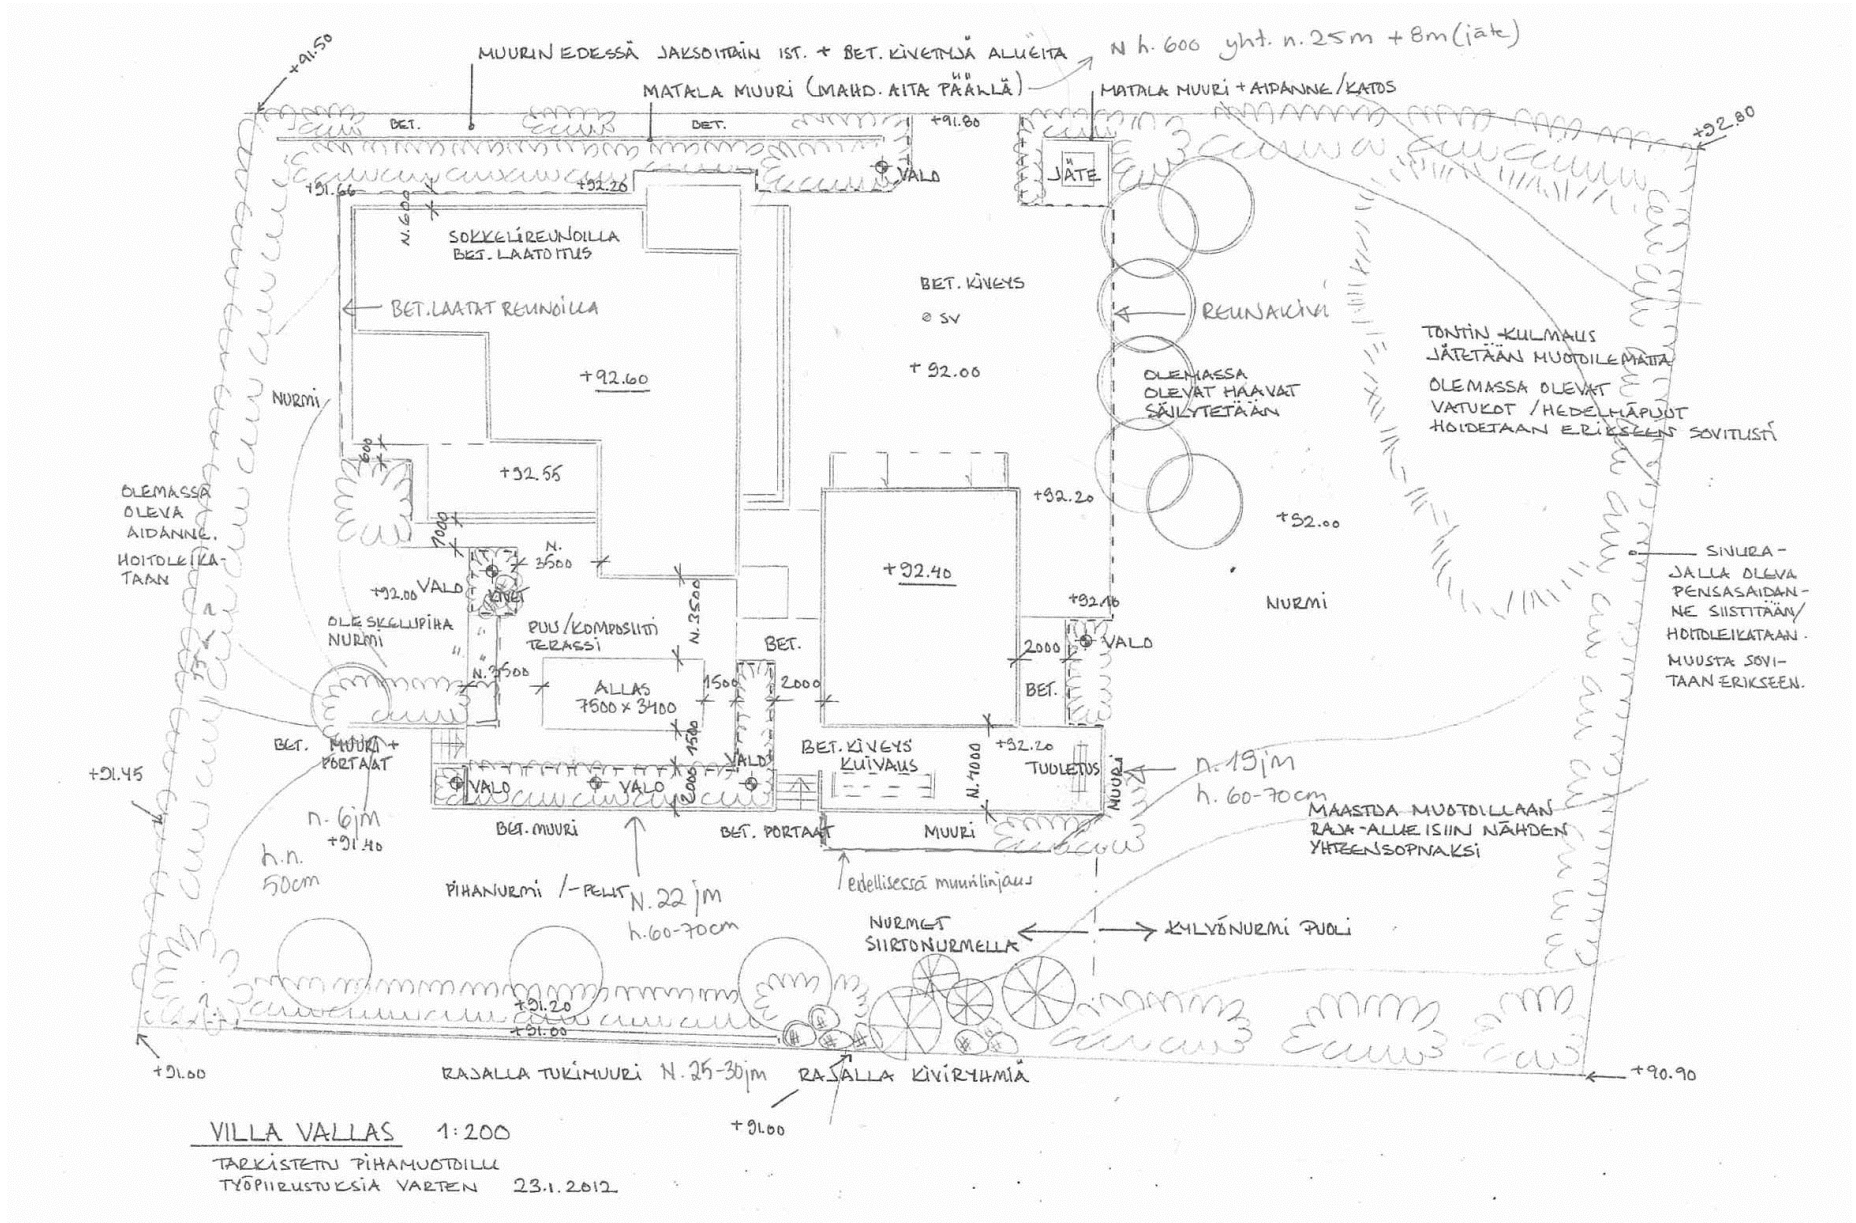 +91.50
MUURIN EDESSÄ JAKSOITTAIN IST. + BET. KIVETTYJÄ ALUEITA
N h. 600 yht. n. 25m + 8m (jäte)
MATALA MUURI (MAHD. AITA PÄÄLLÄ)
MATALA MUURI + AIDANNE/KATOS
BET.
BET.
+91.80
+92.80
VALO
JÄTE
+91.66
+92.20
N.600
SOKKELIREUNOILLA
BET. LAATOITUS
BET. KIVEYS
SV
BET. LAATAT REUNOILLA
REUNAKIVI
TONTIN KULMAUS
JÄTETÄÄN MUOTOILEMATTA
OLEMASSA OLEVAT
VATUKOT / HEDELMÄPUUT
HOIDETAAN ERIKSEEN SOVITUSTI
+92.60
+92.00
OLEMASSA
OLEVAT HAAVAT
SÄILYTETÄÄN
NURMI
600
+92.55
+92.20
+92.00
OLEMASSA
OLEVA
AIDANNE.
HOITOLEIKA-
TAAN
1000
N.
3500
+92.00
VALO
KIVET
+92.40
+92.10
NURMI
SIVURA-
JALLA OLEVA
PENSASAIDAN-
NE SIISTITÄÄN/
HOITOLEIKATAAN.
MUUSTA SOVI-
TAAN ERIKSEEN.
OLESKELUPIHA
NURMI
PUU/KOMPOSIITI
TERASSI
N.3500
BET.
2000
VALO
N.3500
ALLAS
7500 x 3400
1500
2000
BET.
BET.
MUURI +
PORTAAT
1500
BET. KIVEYS
KUIVAUS
+92.20
TUULETUS
N.4000
MUURI
n. 19jm
h. 60-70cm
+91.45
VALO
VALO
VALO
2000
n. 6jm
+91.40
h.n.
50cm
BET. MUURI
BET. PORTAAT
MUURI
MAASTOA MUOTOILLAAN
RAJA-ALUEISIIN NÄHDEN
YHTEENSOPIVAKSI
PIHANURMI /-PELIT
N. 22 jm
h. 60-70cm
edellisessä muurilinjaus
NURMET
SIIRTONURMELLA
KYLVÖNURMI PUOLI
+91.20
+91.00
+91.00
RAJALLA TUKIMUURI N. 25-30jm
RAJALLA KIVIRYHMIÄ
+90.90
+91.00
VILLA VALLAS 1:200
TARKISTETTU PIHAMUOTOILU
TYÖPIIRUSTUKSIA VARTEN 23.1.2012